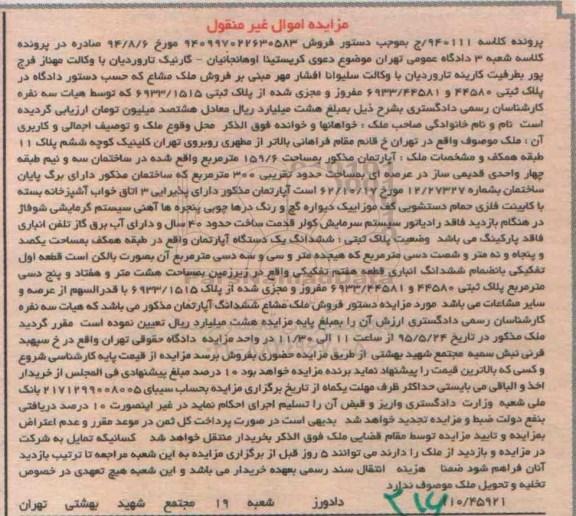 مزایده اموال غیر منقول
پرونده کلاسه ۹۴۰۱۱۱/ج بموجب دستور فروش ۹۴۰۹۹۷۰۲۲۶۳۰۵۸۳ مورخ ۹۴/۸/۶ صادره در پرونده
کلاسه شعبه ۳ دادگاه عمومی تهران موضوع دعوی کریستینا اوهانجانیان - گارنیک تاروردیان با وکالت مهناز فرج
پور بطرفیت کارینه تاروردیان با وکالت سلیوانا افشار مهر مبنی بر فروش ملک مشاع که حسب دستور دادگاه در
پلاک ثبتی ۴۴۵۸۰ و ۶۹۳۳/۴۴۵۸۱ مفروز و مجزی شده از پلاک ثبتی ۶۹۳۳/۱۵۱۵ که توسط هیات سه نفره
کارشناسان رسمی دادگستری بشرح ذیل بمبلغ هشت میلیارد ریال معادل هشتصد میلیون تومان ارزیابی گردیده
است نام و نام خانوادگی صاحب ملک : خواهانها و خوانده فوق الذکر محل وقوع ملک و توصیف اجمالی و کاربری
آن : ملک موصوف واقع در تهران خ قائم مقام فراهانی بالاتر از مطهری روبروی تهران کلینیک کوچه ششم پلاک ۱۱
طبقه همکف و مشخصات ملک : آپارتمان مذکور بمساحت ۱۵۹/۶ مترمربع واقع شده در ساختمان سه و نیم طبقه
چهار واحدی قدیمی ساز در عرصه ای بمساحت حدود تقریبی ۳۰۰ مترمربع که ساختمان مذکور دارای برگ پایان
ساختمان بشماره ۱۲/۲۷۳۲۷ مورخ ۶۲/۱۲/۱۶ است آپارتمان مذکور دارای پذیرایی ۳ اتاق خواب آشپزخانه بسته
با کابینت فلزی حمام دستشویی کف موزاییک دیواره گچ و رنگ درها چوبی پنجره ها آهنی سیستم گرمایشی شوفاژ
در هنگام بازدید فاقد رادیاتور سیستم سرمایش کولر قدمت ساخت حدود ۴۰ سال و دارای آب برق گاز تلفن انباری
فاقد پارکینگ می باشد وضعیت پلاک ثبتی : ششدانگ یک دستگاه آپارتمان واقع در طبقه همکف بمساحت یکصد
و پنجاه و نه متر و شصت دسی مترمربع که هیجده متر و سی و سه دسی مترمربع آن بصورت بالکن است قطعه اول
تفکیکی بانضمام ششدانگ انباری قطعه هفتم تفکیکی واقع در زیرزمین بمساحت هشت متر و هفتاد و پنج دسی
مترمربع پلاک ثبتی ۴۴۵۸۰ و ۶۹۳۳/۴۴۵۸۱ مفروز و مجزی شده از پلاک ۶۹۳۳/۱۵۱۵ با قدرالسهم از عرصه و
سایر مشاعات می باشد مورد مزایده دستور فروش ملک مشاع ششدانگ آپارتمان مذکور می باشد که هیات سه نفره
کارشناسان رسمی دادگستری ارزش آن را بمبلغ پایه مزایده هشت میلیارد ریال تعیین نموده است مقرر گردید
ملک مذکور در تاریخ ۹۵/۵/۲۴ از ساعت ۱۱ الی ۱۱/۳۰ در واحد مزایده دادگاه حقوقی تهران واقع در خ سپهبد
قرنی نبش سمیه مجتمع شهید بهشتی از طریق مزایده حضوری بفروش برسد مزایده از قیمت پایه کارشناسی شروع
و کسی که بالاترین قیمت را پیشنهاد نماید برنده مزایده خواهد بود ۱۰ درصد مبلغ پیشنهادی فی المجلس از خریدار
اخذ و الباقی می بایستی حداکثر ظرف مهلت یکماه از تاریخ برگزاری مزایده بحساب سیبای ۲۱۷۱۲۹۹۰۰۸۰۰۵ بانک
ملی شعبه وزارت دادگستری واریز و قبض آن را تسلیم اجرای احکام نماید در غیر اینصورت ۱۰ درصد دریافتی
بنفع دولت ضبط و مزایده تجدید خواهد شد بدیهی است در صورت پرداخت کل ثمن در موعد مقرر و عدم اعتراض
بمزایده و تایید مزایده توسط مقام قضایی ملک فوق الذکر بخریدار منتقل خواهد شد کسانیکه تمایل به شرکت
در مزایده و بازدید از ملک را دارند می توانند ۵ روز قبل از برگزاری مزایده به این شعبه مراجعه تا ترتیب بازدید
آنان فراهم شود ضمنا هزینه انتقال سند رسمی بعهده خریدار می باشد و این شعبه هیچ تعهدی در خصوص
تخلیه و تحویل ملک موصوف ندارد
۱۱۰/۴۵۹۲۱ دادورز شعبه ۱۹ مجتمع شهید بهشتی تهران